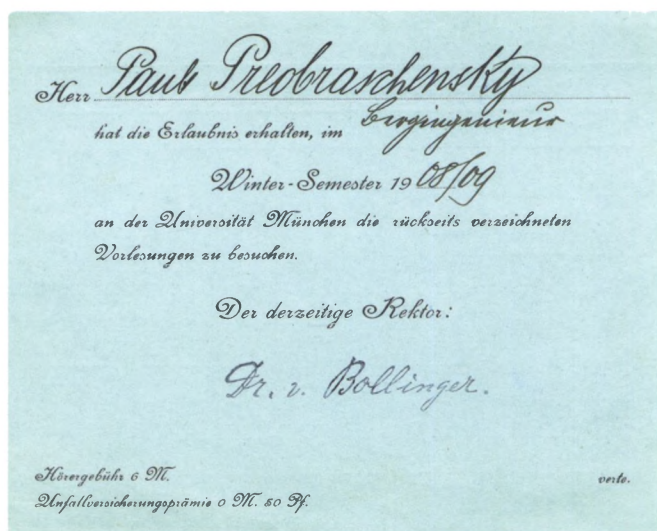 Herr Paul Preobraschensky
Bergingenieur
hat die Erlaubnis erhalten, im
Winter-Semester 1908/09
an der Universität München die rückseits verzeichneten
Vorlesungen zu besuchen.
Der derzeitige Rektor:
Dr. v. Bollinger.
Hörergebühr 6 M.
verte.
Unfallversicherungsprämie 0 M. 80 Pf.